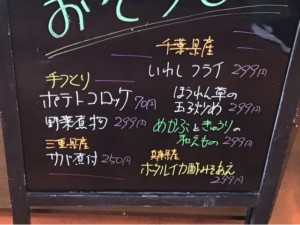 おそうざい
手づくり
ポテトコロッケ 90円
野菜煮物 299円
三重県産
サバ煮付 250円
千葉県産
いわしフライ 299円
ほうれん草の
玉子炒め 299円
めかぶときゅうりの
和えもの 299円
兵庫県産
ホタルイカ酢みそあえ
299円